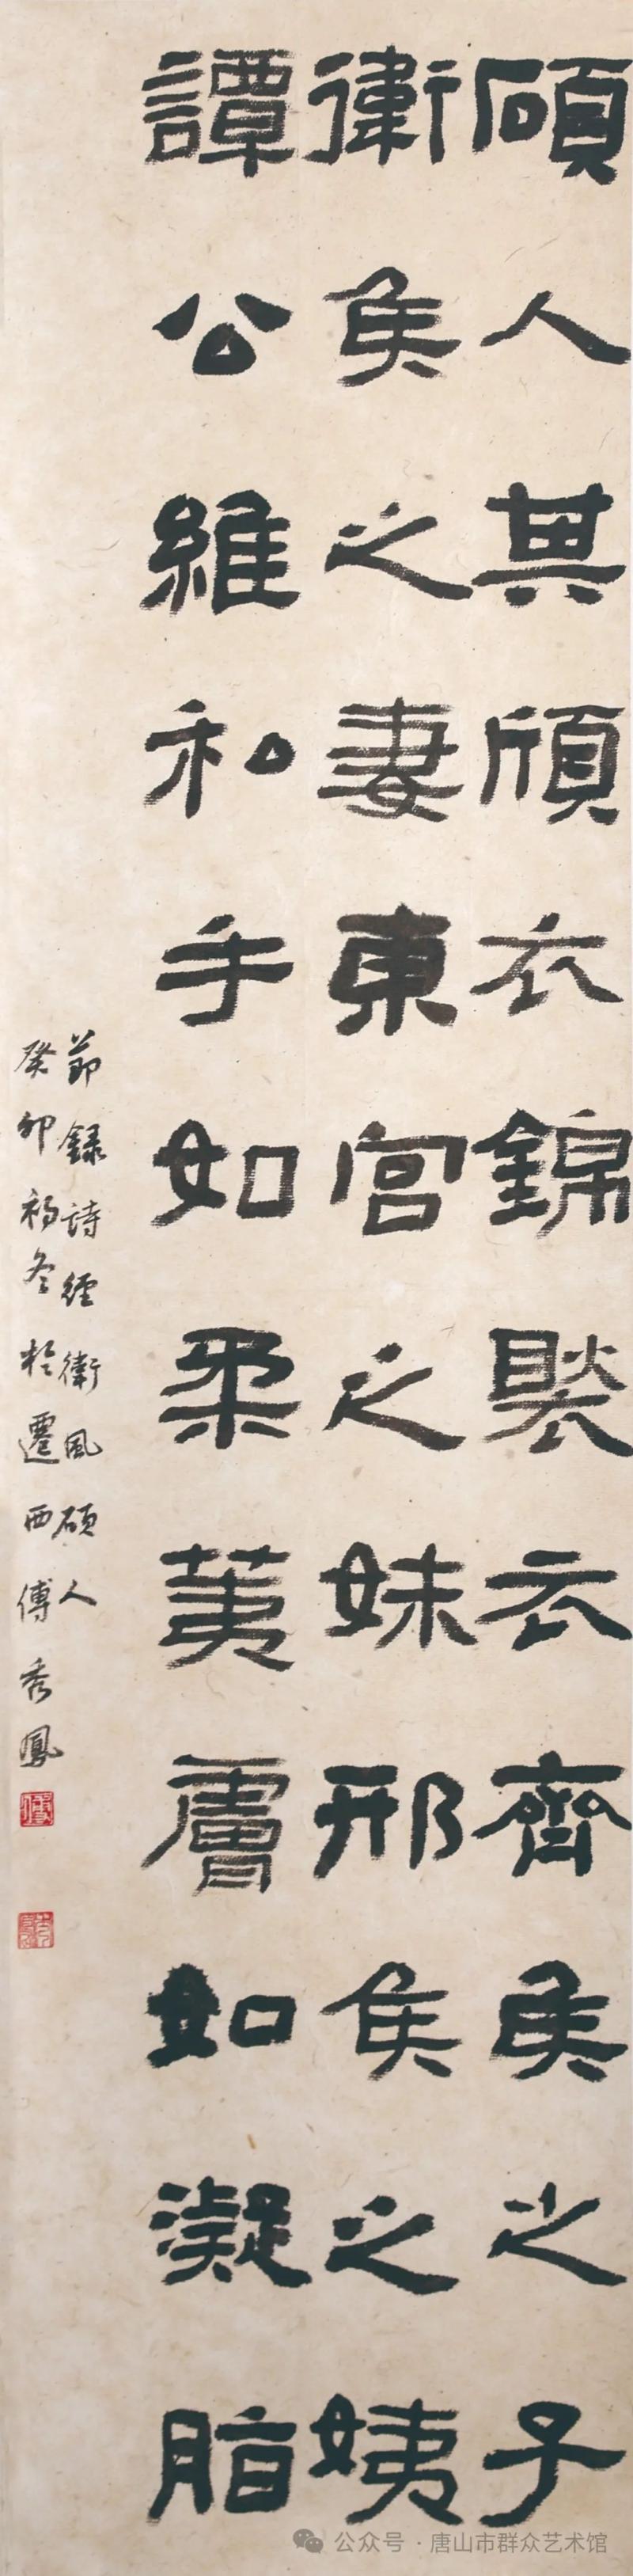 碩人其頎衣錦褧衣齊侯之子
衛侯之妻東宮之妹邢侯之姨
譚公維私手如柔荑膚如凝脂
節錄詩經衛風碩人
癸卯初冬於遷西傅秀鳳
公众号 · 唐山市群众艺术馆